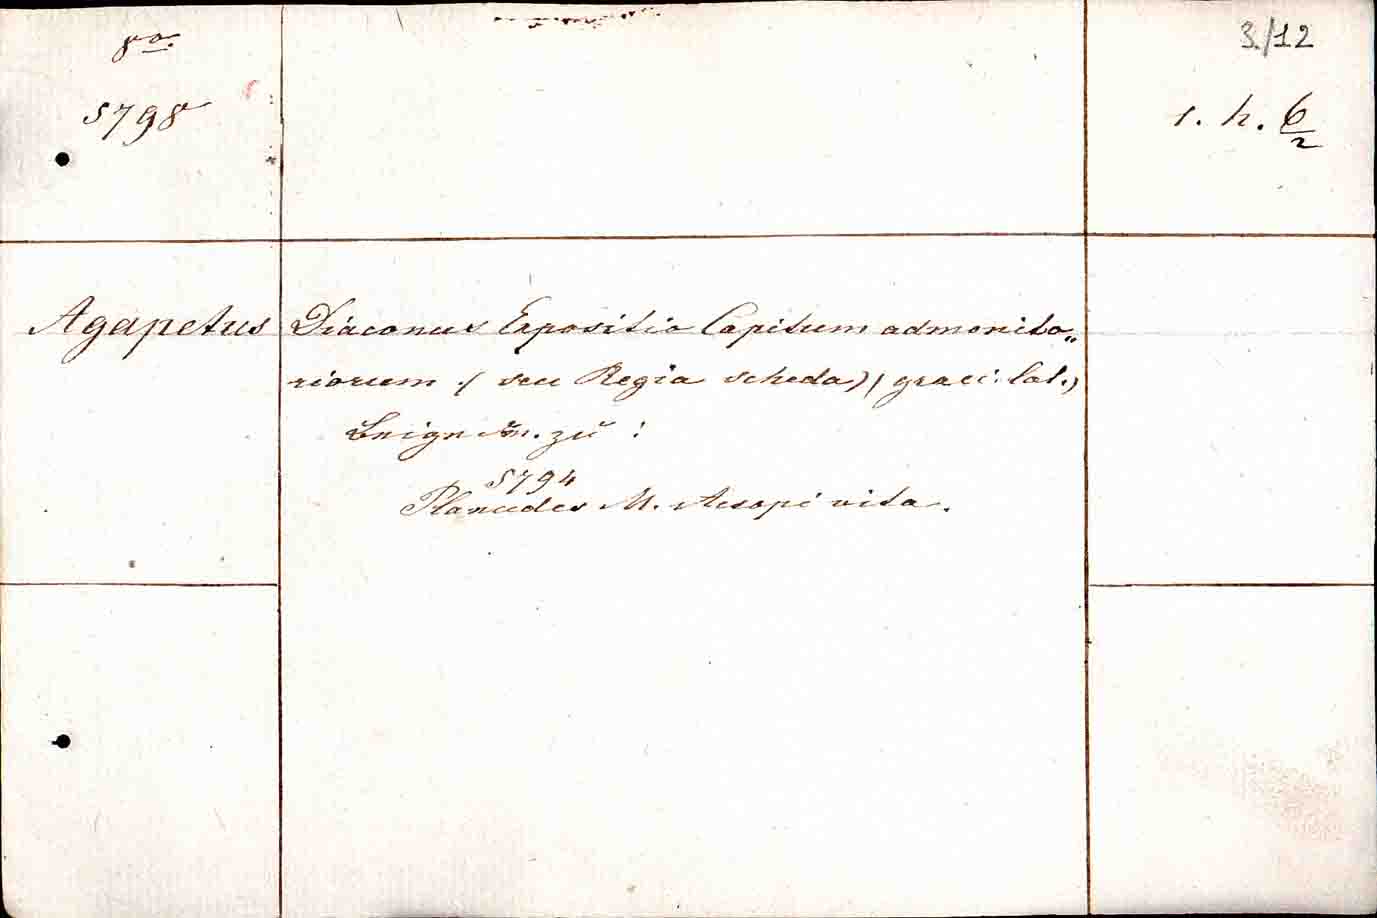 8o.
5798
3./12
1. h. 6/2
Agapetus Diaconus Expositio Capitum admonito„
riorum /( seu Regia scheda)/ graec: lat.)
zu :
5794
Planudes M. Aesopi vita.